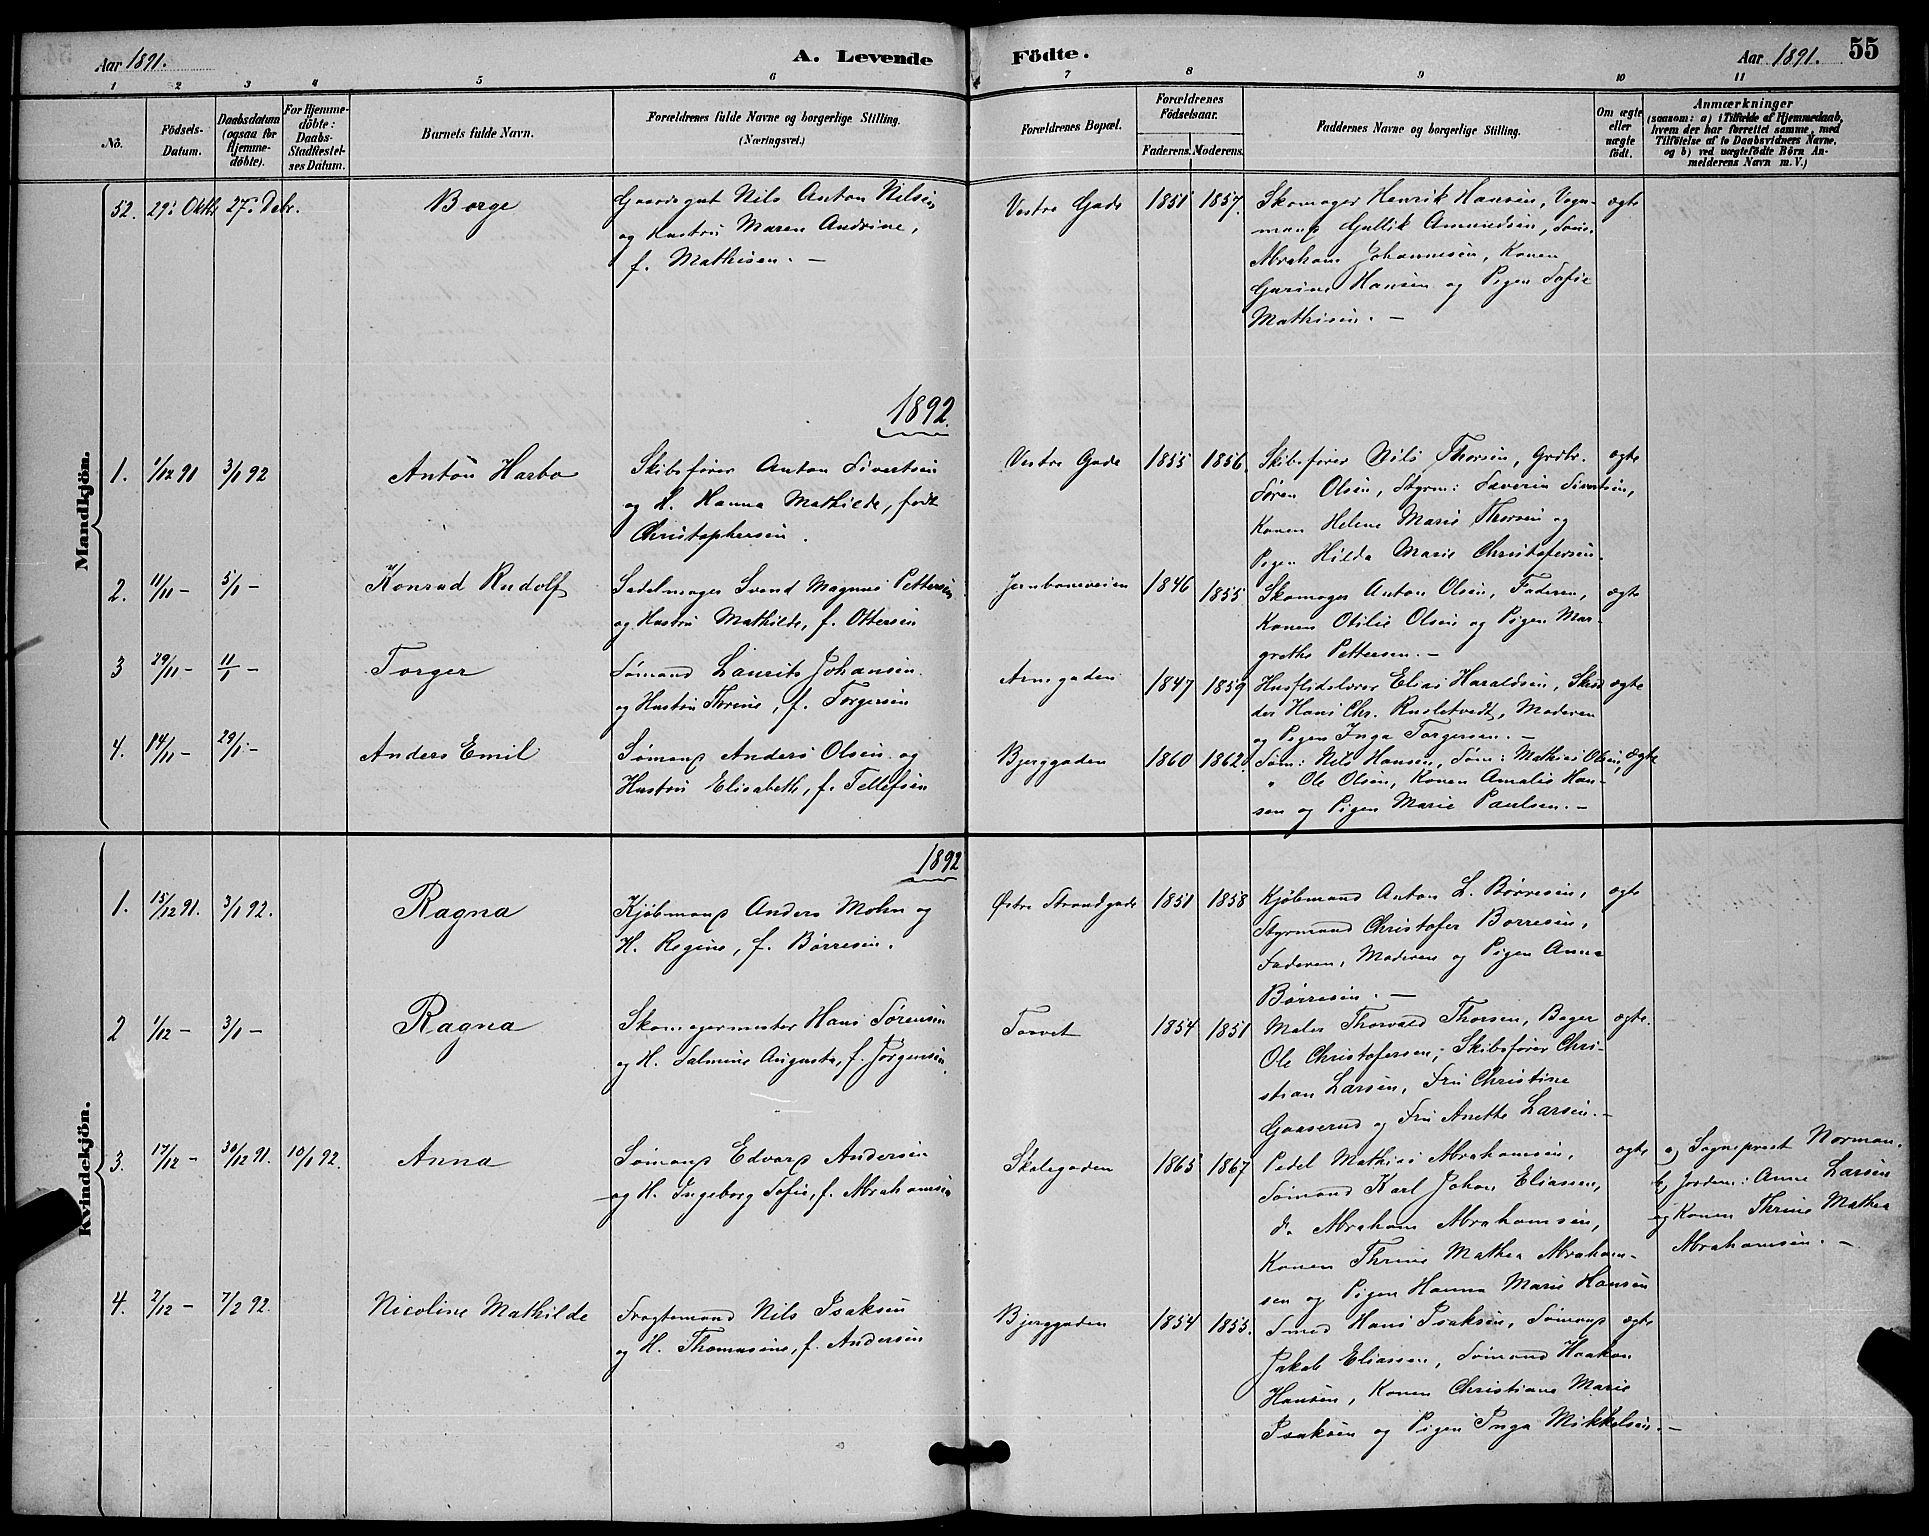 Aar 1891.
A. Levende
Födte.
Aar 1891.
55
1 2 3 4 5 6 7 8 9 10 11
Nö.
Födsels-
Datum.
Daabsdatum
(ogsaa for
Hjemme-
döbte).
For Hjemme-
döbte:
Daabs-
Stadfæstel-
ses Datum.
Barnets fulde Navn.
Forældrenes fulde Navne og borgerlige Stilling.
(Næringsvei.)
Forældrenes Bopæl.
Forældrenes
Födselsaar.
Faderens. Moderens.
Faddernes Navne og borgerlige Stilling.
Om ægte
eller
uægte
födt.
Anmærkninger
(saasom: a) i Tilfælde af Hjemmedaab,
hvem der har forrettet samme, med
Tilföielse af to Daabsvidners Navne,
og b) ved uægtefödte Börn An-
melderens Navn m. V.)
Mandkjön.
52. 29: Oktb. 27: Debr. Borge
Gaardsgut Nils Anton Nilsen
og Hustru Maren Andrine,
f. Mathisen. –
Vestre Gade 1851 1857.
Skomager Henrik Hansen, Vogn-
mand Gullik Amundsen, Søm.
Abraham Johannesen, Konen
Gurine Hansen og Pigen Sofie
Mathisen. –
ægte
1892.
1. 1/12 91 3/1 92 Anton Harbo
Skibsfører Anton Sivertsen
og H. Hanna Mathilde, født
Christophersen.
Vestre Gade 1855 1856.
Skibsfører Nils Thorsen, Grdbr.
Søren Olsen, Styrm: Severin Sivertsen,
Konen Helene Marie Thorsen og
Pigen Hilda Marie Christofersen.
ægte
2. 11/11 – 5/1 – Konrad Rudolf
Sadelmager Svend Magnus Pettersen
og Hustru Mathilde, f. Ottersen
Jernbaneveien 1846 1855
Skomager Anton Olsen, Faderen,
Konen Otilie Olsen og Pigen Mar-
grethe Pettersen. –
ægte
3 29/11 – 11/1 – Torger
Sømand Laurits Johansen
og Hustru Thrine, f. Torgersen
Arnegaden 1847 1859
Husflidslærer Elias Haraldsen, Skræd
der Hans Chr. Rusletvedt, Moderen
og Pigen Inga Torgersen. –
ægte
4. 14/11 – 29/1 – Anders Emil
Sømand Anders Olsen og
Hustru Elisabeth, f. Tellefsen
Bjerggaden 1860 1862.
Søm: Nils Hansen, Søm: Mathias Olsen,
" Ole Olsen, Konen Amalie Han-
sen og Pigen Marie Paulsen. –
ægte
Kvindekjön.
1892
1. 15/12 91. 3/1 92. Ragna
Kjøbmand Anders Mohn og
H. Regine, f. Børresen.
Østre Strandgade 1851 1858
Kjøbmand Anton L. Børresen,
Styrmand Christofer Borresen,
Faderen, Moderen og Pigen Anna
Børresen. –
ægte
2 1/12 – 3/1 – Ragna
Skomagermester Hans Sørensen
og H. Salmine Augusta, f. Jørgensen.
Torvet 1854 1851
Maler Thorvald Thorsen, Bager
Ole Christofersen, Skibsfører Chri-
stian Larsen, Fru Christine
Gaaserud og Fru Anette Larsen. –
ægte.
3. 17/12 – 30/12 91. 10/1 92. Anna
Sømand Edvard Andersen
og H. Ingeborg Sofie, f. Abrahamsen
Skolegaden 1865 1867
Pedel Mathias Abrahamsen,
Sømand Karl Johan Eliassen,
do Abraham Abrahamsen,
Konen Thrine Mathea Abraham-
sen og Pigen Hanna Marie Hansen
ægte
a) Sogneprest Norman.
b) Jordm: Anne Larsen
og Konen Thrine Mathea
Abrahamsen. –
4. 2/12 – 7/2 92. Nicoline Mathilde
Fragtemand Nils Isaksen
og H. Thomasine, f. Andersen
Bjerggaden 1854 1855.
Smed Hans Isaksen, Sømand
Jakob Eliassen, Sømand Haakon
Hansen, Konen Christiane Marie
Isaksen og Pigen Inga Mikkelsen. –
ægte